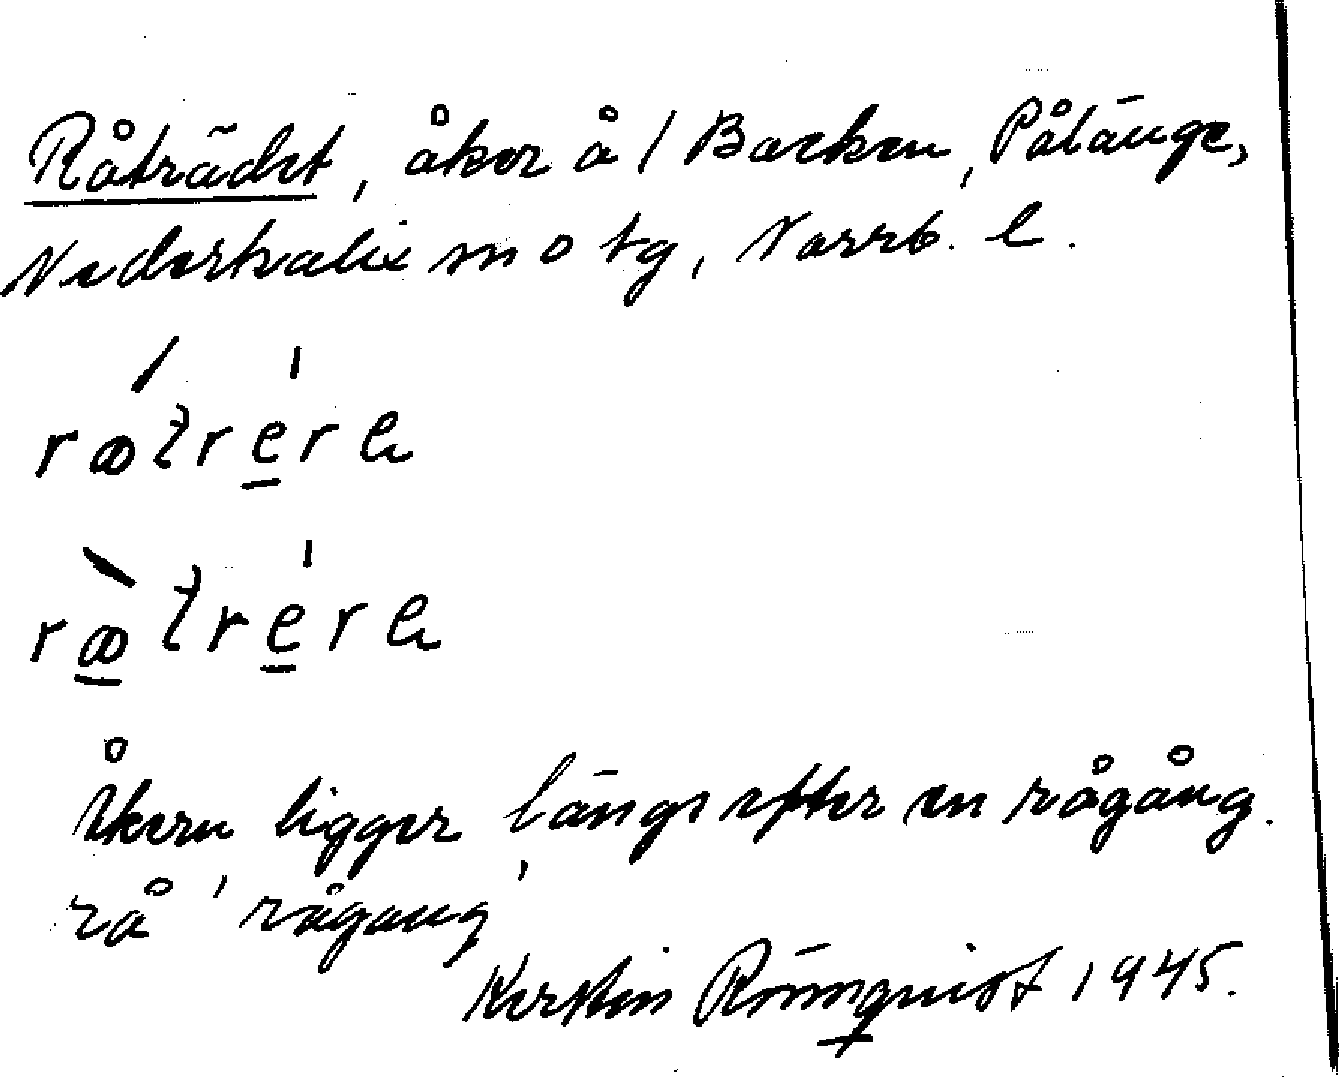 Råträdet, åker å 1 Backen, Pålänge,
Nederkalix sn o tg, Norrb. l.
Åkern ligger längs efter en rågång.
rå 'rågång'
Kerstin Rönnquist 1945.